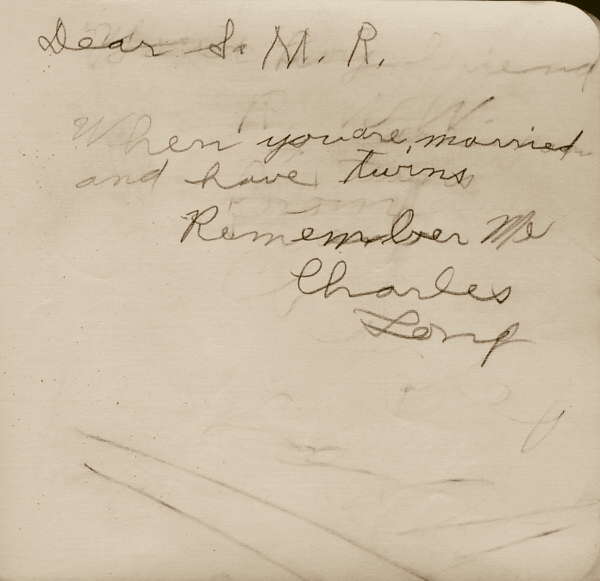 Dear S. M. R.
When you are married
and have twins
Remember Me
Charles
Long